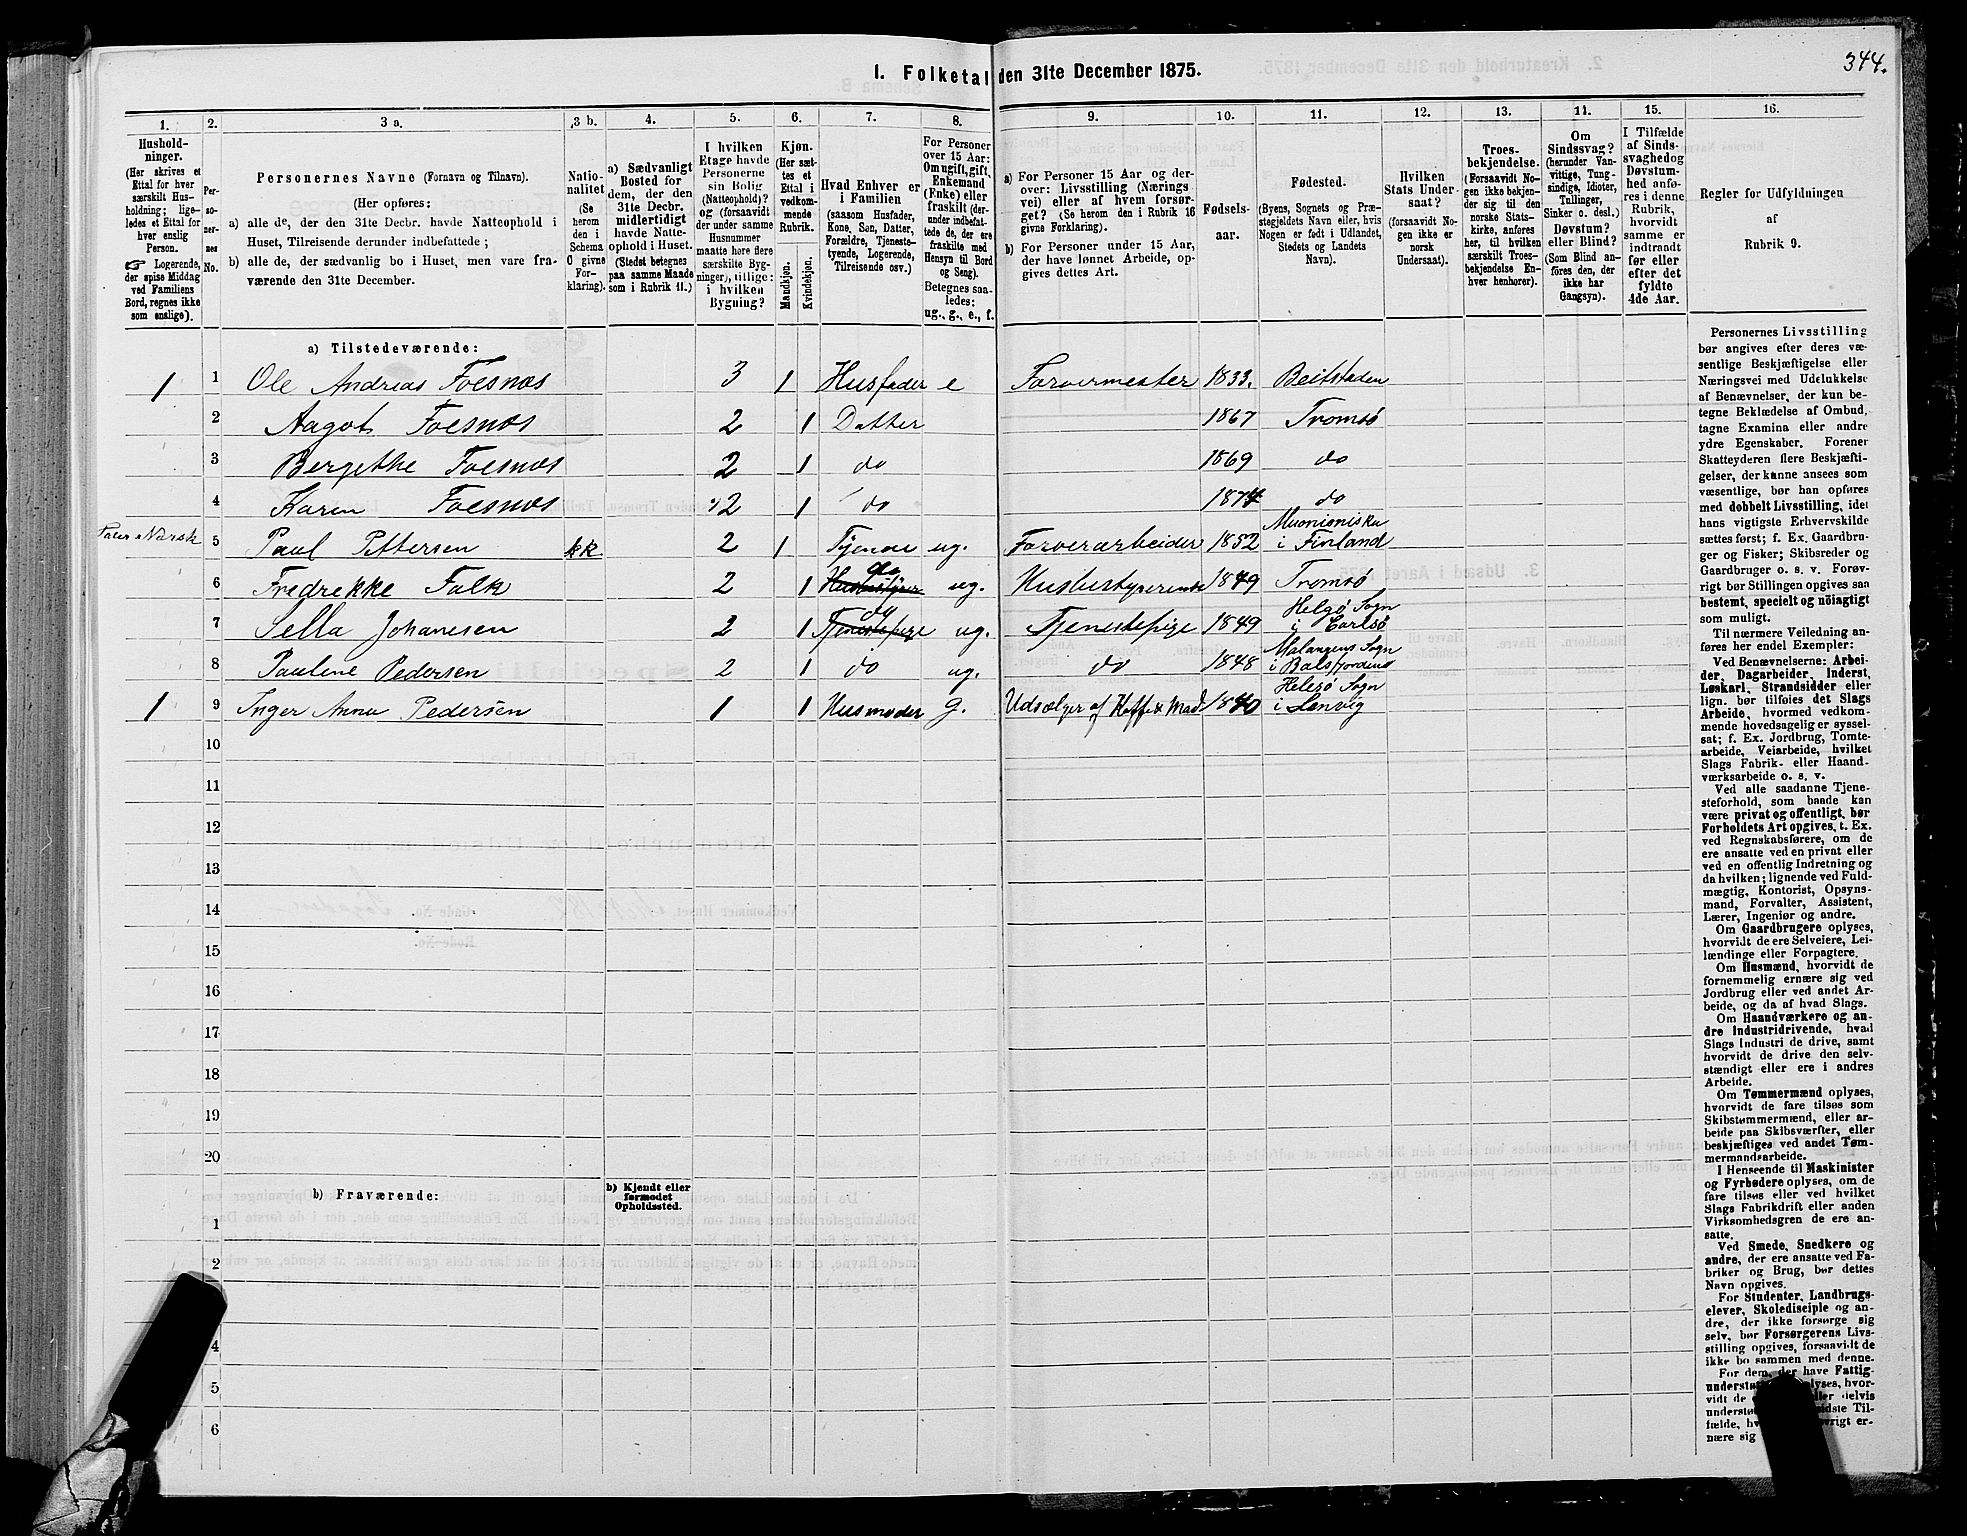 344.
I. Folketal den 31te December 1875.
1. 2. 3 a. 3 b. 4. 5. 6. 7. 8. 9. 10. 11. 12. 13. 14. 15. 16.
Hushold-
ninger.
(Her skrives et
Ettal for hver
særskilt Hus-
holdning; lige-
ledes et Ettal for
hver enslig
Person.
☞ Logerende,
der spise Middag
ved Familiens
Bord, regnes ikke
som enslige).
Per-
so-
ner-
nes
No.
Personernes Navne (Fornavn og Tilnavn).
(Her opføres:
a) alle de, der den 31te Decbr. havde Natteophold i
Huset, Tilreisende derunder indbefattede;
b) alle de, der sædvanlig bo i Huset, men vare fra-
værende den 31te December.
Natio-
nalitet
(Se
herom
den i
Schema
O givne
For-
klaring).
a) Sædvanligt
Bosted for
dem, der den
31te Decbr.
midlertidigt
havde Natte-
ophold i Huset.
(Stedet betegnes
paa samme Maade
som i Rubrik 11.)
I hvilken
Etage havde
Personerne
sin Bolig
(Natteophold)?
og (forsaavidt
der under samme
Husnummer
maatte høre flere
særskilte Byg-
ninger), tillige:
i hvilken
Bygning?
Kjøn.
(Her sæt-
tes et
Ettal i
vedkom-
mende
Rubrik.
Mandskjøn.
Kvindekjøn.
Hvad Enhver er
i Familien
(saasom Husfader,
Kone, Søn, Datter,
Forældre, Tjeneste-
tyende, Logerende,
Tilreisende osv.)
For Personer
over 15 Aar:
Om ugift, gift,
Enkemand
(Enke) eller
fraskilt (der-
under indbefat-
tede de, der ere
fraskilte med
Hensyn til Bord
og Seng).
Betegnes saa-
ledes:
ug., g., e., f.
a) For Personer 15 Aar og der-
over: Livsstilling (Nærings-
vei) eller af hvem forsør-
get? (Se herom den i Rubrik 16
givne Forklaring).
b) For Personer under 15 Aar,
der have lønnet Arbeide, op-
gives dettes Art.
Fødsels-
aar.
Fødested.
(Byens, Sognets og Præ-
stegjeldets Navn eller, hvis
Nogen er født i Udlandet,
Stedets og Landets
Navn).
Hvilken
Stats Under-
saat?
(forsaavidt No-
gen ikke er
norsk
Undersaat).
Troes-
bekjendelse.
(Forsaavidt No-
gen ikke bekjen-
der sig til den
norske Stats-
kirke, anføres
her, til hvilken
særskilt Troes-
bekjendelse En-
hver henhører).
Om
Sindssvag?
(herunder Van-
vittige, Tung-
sindige, Idioter,
Tullinger,
Sinker o. desl.)
Døvstum?
eller Blind?
(Som Blind an-
føres den, der
ikke har
Gangsyn).
I Tilfælde
af Sinds-
svaghed og
Døvstum-
hed anfø-
res i denne
Rubrik,
hvorvidt
samme er
indtraadt
før eller
efter det
fyldte
4de Aar.
Regler for Udfyldningen
af
Rubrik 9.
a) Tilstedeværende:
1 1 Ole Andreas Foesnæs 3 1 Husfader e Farvermester 1833. Beitstaden
2 Aagot Foesnæs 2 1 Datter 1867 Tromsø
3 Bergethe Foesnæs 2 1 do 1869 do
4 Karen Foesnæs 2 1 do 1874 do
5 Paul Pettersen kk 2 1 Tjener ug. Farverarbeider 1852 Muonioniska i Finland
6 Fredrekke Falk 2 1 do ug. Husbestyrerinde 1849 Tromsø
7 Sella Johanesen 2 1 Tjenestepige do ug. Tjenestepige 1849 Helgø Sogn i Carlsø
8 Pauline Pedersen 2 1 do ug. do 1848 Malangens Sogn i Balsfjorden
1 9 Inger Anna Pedersen 1 1 Husmoder g. Udsælger af Kaffe & Mad 1840 i Lenvig
10
11
12
13
14
15
16
17
18
19
20
b) Fraværende:
b) Kjendt eller
formodet
Opholdssted.
1
2
4
5
6
Personernes Livsstilling
bør angives efter deres væ-
sentlige Beskjæftigelse eller
Næringsvei med Udelukkelse
af Benævnelser, der kun be-
tegne Beklædelse af Ombud,
tagne Examina eller andre
ydre Egenskaber. Forener
Skatteyderen flere Beskjæfti-
gelser, der kunne ansees som
væsentlige, bør han opføres
med dobbelt Livsstilling, idet
hans vigtigste Erhvervskilde
sættes først; f. Ex. Gaardbru-
ger og Fisker; Skibsreder og
Gaardbruger o. s. v. Forøv-
rigt bør Stillingen opgives saa
bestemt, specielt og nøiagtigt
som muligt.
Til nærmere Veiledning an-
føres her endel Exempler:
Ved Benævnelserne: Arbei-
der, Dagarbeider, Inderst,
Løskarl, Strandsidder eller
lign. bør tilføies det Slags
Arbeide, hvormed vedkom-
mende hovedsagelig er syssel-
sat; f. Ex. Jordbrug, Tomte-
arbeide, Veiarbeide, hvilket
Slags Fabrik- eller Haand-
værksarbeide o. s. v.
Ved alle saadanne Tjene-
steforhold, som baade kan
være privat og offentligt, bør
Forholdets Art opgives, t. Ex.
ved Regnskabsførere, om de
ere ansatte ved en privat eller
ved en offentlig Indretning og
da hvilken; lignende ved Fuld-
mægtig, Kontorist, Opsyns-
mand, Forvalter, Assistent,
Lærer, Ingeniør og andre.
Om Gaardbrugere oplyses,
hvorvidt de ere Selveiere, Lei-
lændinge eller Forpagtere.
Om Husmænd, hvorvidt de
fornemmelig ernære sig ved
Jordbrug eller ved andet Ar-
beide, og da af hvad Slags.
Om Haandværkere og an-
dre Industridrivende, hvad
Slags Industri de drive, samt
hvorvidt de drive den selv-
stændigt eller ere i andres
Arbeide.
Om Tømmermænd oplyses,
hvorvidt de fare tilsøs som
Skibstømmermænd, eller ar-
beide paa Skibsværfter, eller
beskjæftiges ved andet Tøm-
mermandsarbeide.
I Henseende til Maskinister
og Fyrbødere oplyses, om de
fare tilsøs eller ved hvilket
Slags Fabrikdrift eller anden
Virksomhedsgren de ere an-
satte.
Ved Smede, Snedkere og
andre, der ere ansatte ved Fa-
briker og Brug, bør dettes
Navn opgives.
For Studenter, Landbrugs-
elever, Skoledisciple og an-
dre, der ikke forsørge sig
selv, bør Forsørgerens Livs-
stilling opgives, forsaavidt de
ikke bo sammen med denne.
For dem, der have Fattig-